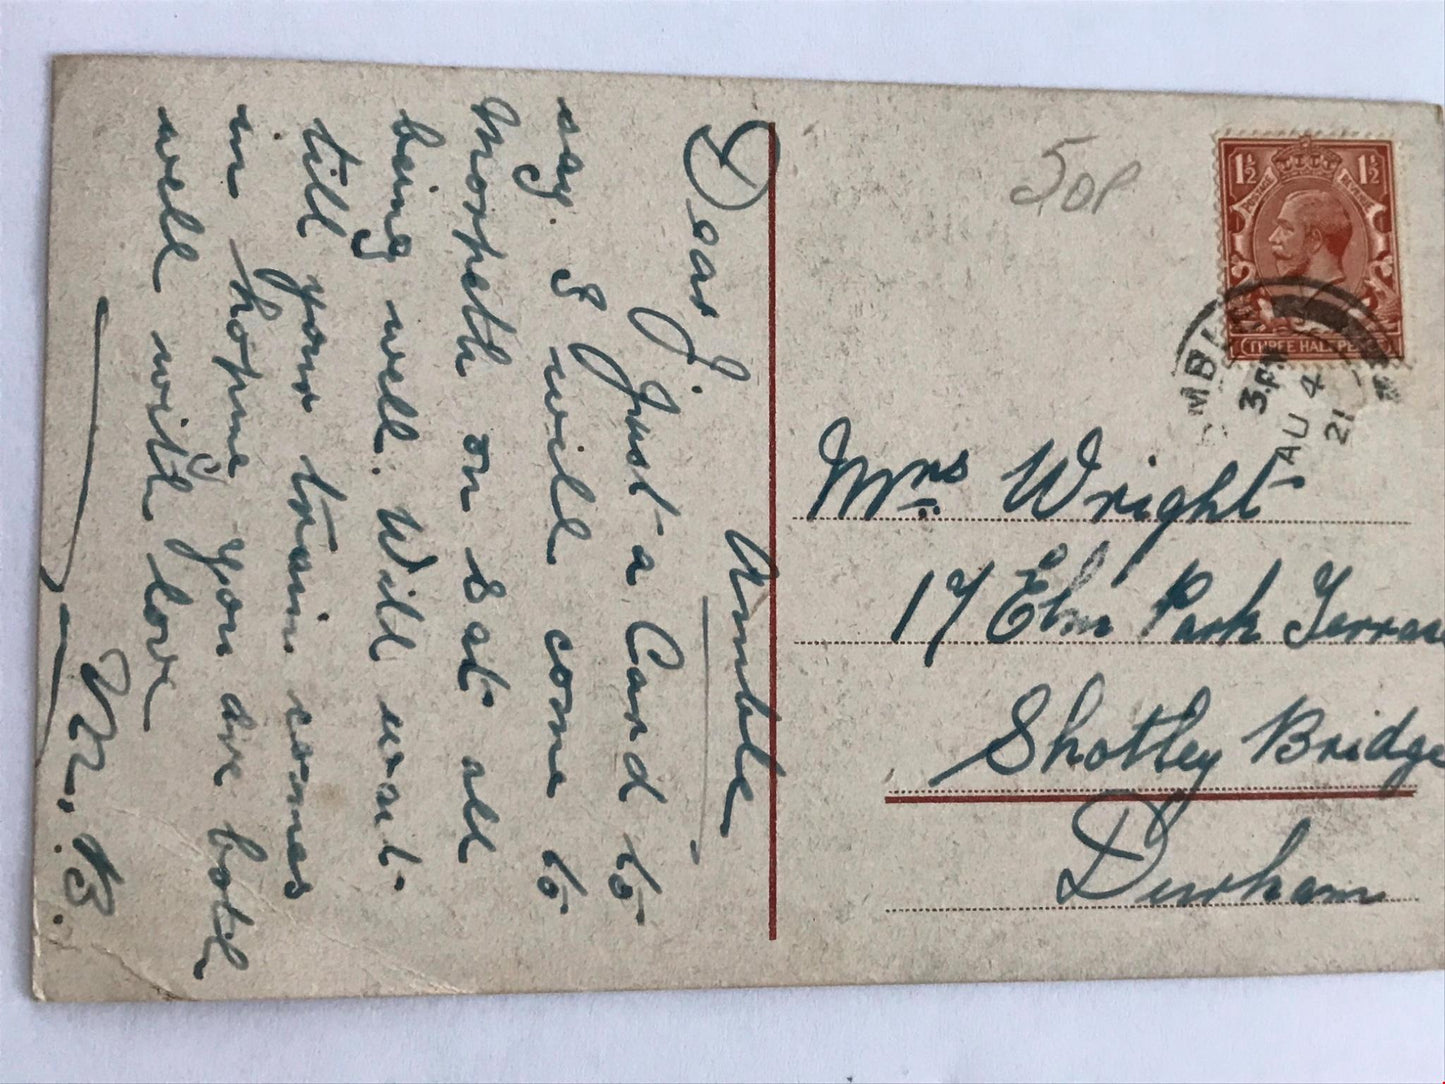 Amble
Dear J.
Just a Card to
say. I will come to
Morpeth on Sat. all
being well. Will wait.
till your train comes
in hoping you are both
well with love
M. B.
50P
1½ 1½
POSTAGE REVENUE
THREE HALFPENCE
AMBLE
3.PM
AU 4
21
Mrs Wright
17 Elm Park Terrac
Shotley Bridge
Durham